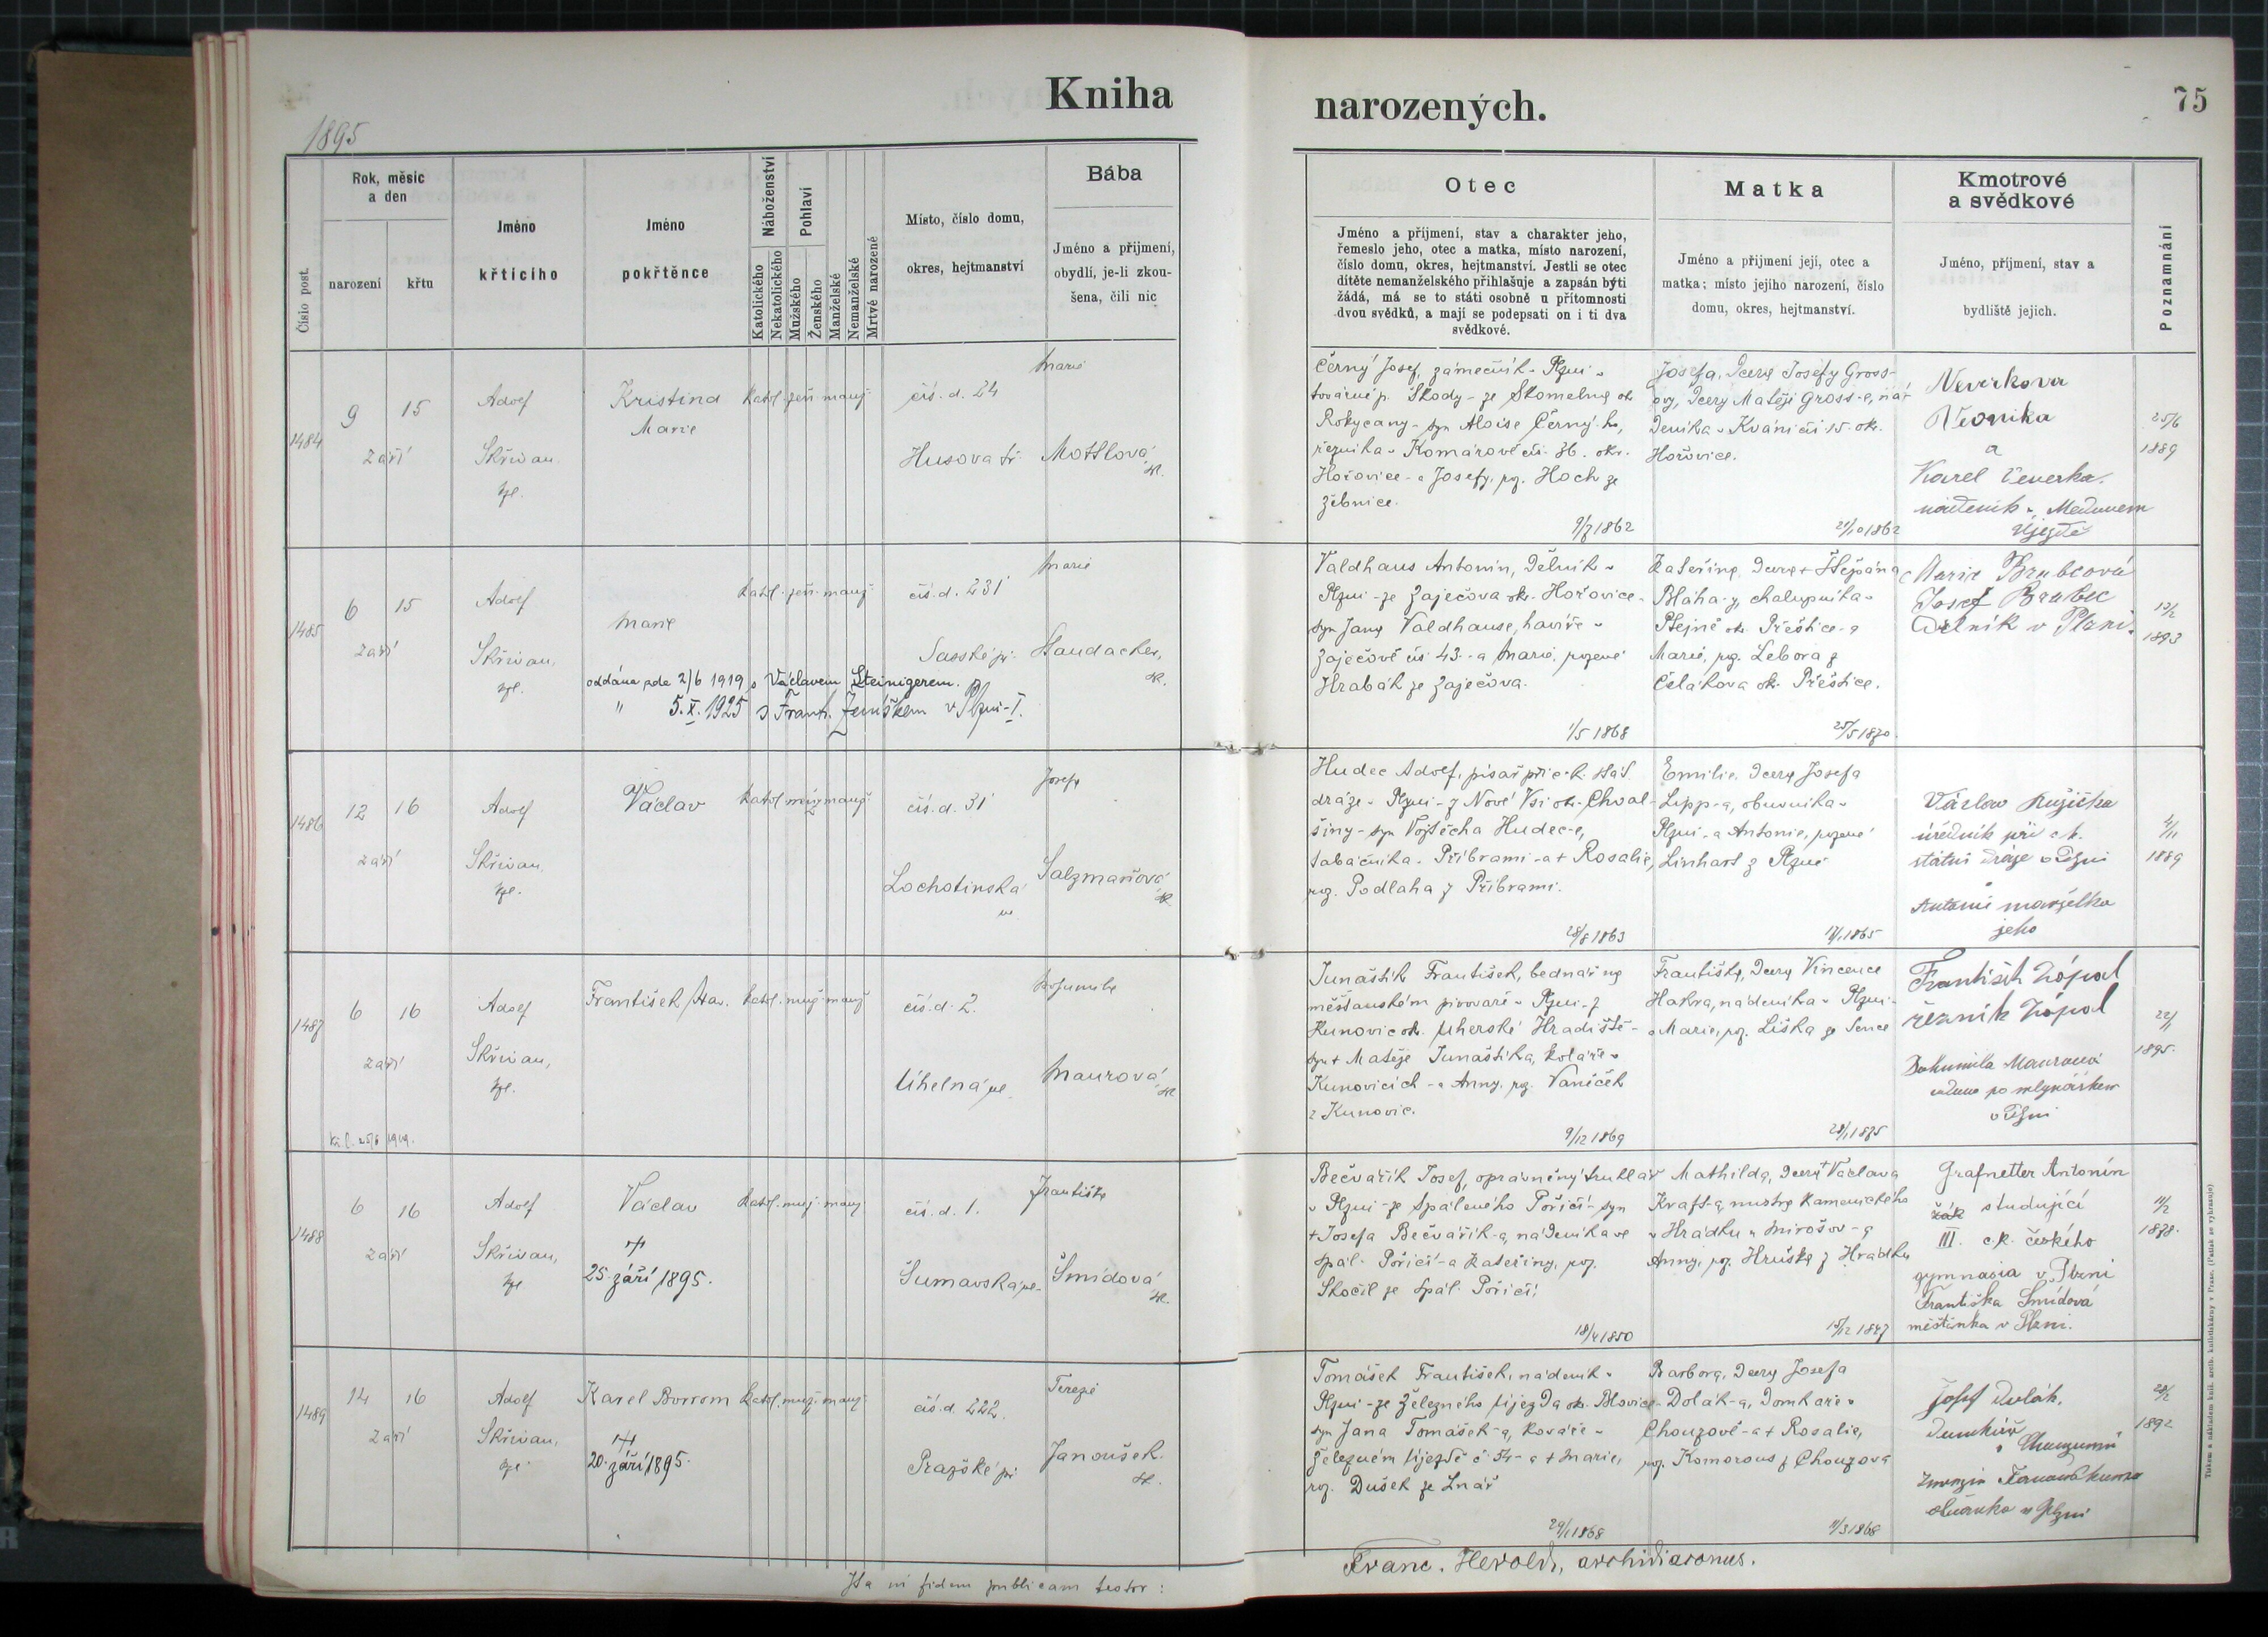 Kniha
narozených.
75
1895
Číslo post.
Rok, měsíc
a den
narození
křtu
Jméno
křtícího
Jméno
pokřtěnce
Náboženství
Katolického
Nekatolického
Pohlaví
Mužského
Ženského
Manželské
Nemanželské
Mrtvé narozené
Místo, číslo domu,
okres, hejtmanství
Bába
Jméno a příjmení,
obydlí, je-li zkou-
šena, čili nic
Otec
Jméno a příjmení, stav a charakter jeho,
řemeslo jeho, otec a matka, místo narození,
číslo domu, okres, hejtmanství. Jestli se otec
dítěte nemanželského přihlašuje a zapsán býti
žádá, má se to státi osobně u přítomnosti
dvou svědků, a mají se podepsati on i ti dva
svědkové.
Matka
Jméno a příjmení její, otec a
matka; místo jejího narození, číslo
domu, okres, hejtmanství.
Kmotrové
a svědkové
Jméno, příjmení, stav a
bydliště jejich.
Poznamnání
1484
9 15
září
Adolf
Skřivan
kpl.
Kristina
Marie
katol. žen. manž.
čís. d. 24
Husova tř.
Marie
Mottlová
zk.
Černý Josef, zámečník v Plzni v
továrně p. Škody - ze Skomelna ok.
Rokycany - syn Aloise Černý-ho,
řezníka v Komárově čís. 36. okr.
Hořovice - a Josefy, roz. Hoch ze
Žebnice.
9/7 1862
Josefa, dcera Josefy Gross-
ovy, dcery Matěje Gross-e, ná-
deníka v Kváníčí 15. ok.
Hořovice.
21/10 1862
Neverkova
Veronika
a
Karel Čeverka
nádeník v Medovém
Újezdě
25/6
1889
1485
6 15
září
Adolf
Skřivan,
kpl.
Marie
oddána zde 2/6 1919 s Václavem Steinigerem.
" 5. X. 1925 s Frant. Jeníškem v Plzni-I.
katol. žen. manž.
čís. d. 231
Sasské př.
Marie
Haudacher,
zk.
Valdhaus Antonín, dělník v
Plzni - ze Zaječova ok. Hořovice -
syn Jana Valdhause, havíře v
Zaječově čís 43. - a Marie, rozené
Hrabák ze Zaječova.
1/5 1868
Kateřina, dcera + Štěpána
Bláha-y, chalupníka v
Ptejně ok. Přeštice - a
Marie, roz. Lebora z
Čelákova ok. Přeštice.
25/5 1870
Marie Brabcová
Josef Brabec
Dělník v Plzni.
12/2
1893
1486
12 16
září
Adolf
Skřivan,
kpl.
Václav
katol. muž. manž.
čís. d. 31
Lochotinská
ul.
Josefa
Salzmanová
zk.
Hudec Adolf, písař při c. k. stát.
dráze v Plzni - z Nové Vsi ok. Chval-
šiny - syn Vojtěcha Hudec-e,
tabáčníka v Příbrami - a + Rosalie,
roz. Podlaha z Příbrami.
28/8 1863
Emilie, dcera Josefa
Lipp-a, obuvníka v
Plzni - a Antonie, rozené
Linhart z Plzně
1865
Václav Ružička
úředník při c. k.
státní dráze v Plzni
Antonie manželka
jeho
4/11
1889
1487
6 16
září
Adolf
Skřivan,
kpl.
Kř. l. 25/8 1919.
František Stav.
katol. muž. manž.
čís. d. 2.
Úhelná ul.
Bohumila
Maurová
zk.
Junaštík František, bednář v
měšťanském pivovaře v Plzni - z
Kunovic ok. Uherské Hradiště -
syn + Matěje Junaštíka, koláře v
Kunovicích - a Anny, roz. Vaníček
z Kunovic.
9/12 1869
Františka, dcera Vincence
Hakra, nádeníka v Plzni -
a Marie, roz. Liška ze Sence
28/1 1875
František Zópol
řezník Zópol
Bohumila Maurová
vdova po mlynářskem
v Plzni
22/1
1895.
1488
6 16
září
Adolf
Skřivan,
kpl.
Václav
25. září 1895.
katol. muž. manž.
čís. d. 1.
Šumavská ul.
Františka
Šmídová
zk.
Bečvařík Josef, oprávněný truhlář
v Plzni - ze Spáleného Poříčí - syn
+ Josefa Bečvařík-a, nádeníka ve
Spál. Poříčí - a Kateřiny, roz.
Skočil ze Spál. Poříčí.
18/4 1850
Mathilda, dcera + Václava
Kraft-a, mistra kamenického
v Hrádku u Mirošov - a
Anny, roz. Hruška z Hrádku
15/12 1847
Grafnetter Antonín
žák studující
III. c. k. českého
gymnasia v Plzni
Františka Šmídová
měštínka v Plzni.
11/2
1878.
1489
14 16
září
Adolf
Skřivan,
kpl.
Karel Borrom
20. září 1895.
katol. muž. manž.
čís. d. 222.
Pražské př.
Terezie
Janoušek
zk.
Tomášek František, nádeník v
Plzni - ze Železného Újezda ok. Blovice -
syn Jana Tomášek-a, kováře v
Železném Újezdě č. 54 - a + Marie,
roz. Dušek ze Lnář
29/1 1868
Barbora, dcera Josefa
Dolák-a, domkáře v
Chouzové - a + Rosalie,
roz. Komorous z Chouzová
11/3 1868
Josef Dolák,
Domkář
obuvníka v Plzni
28/2
1892
Ita in fidem publicam testor:
Franc. Herold, archidiaconus.